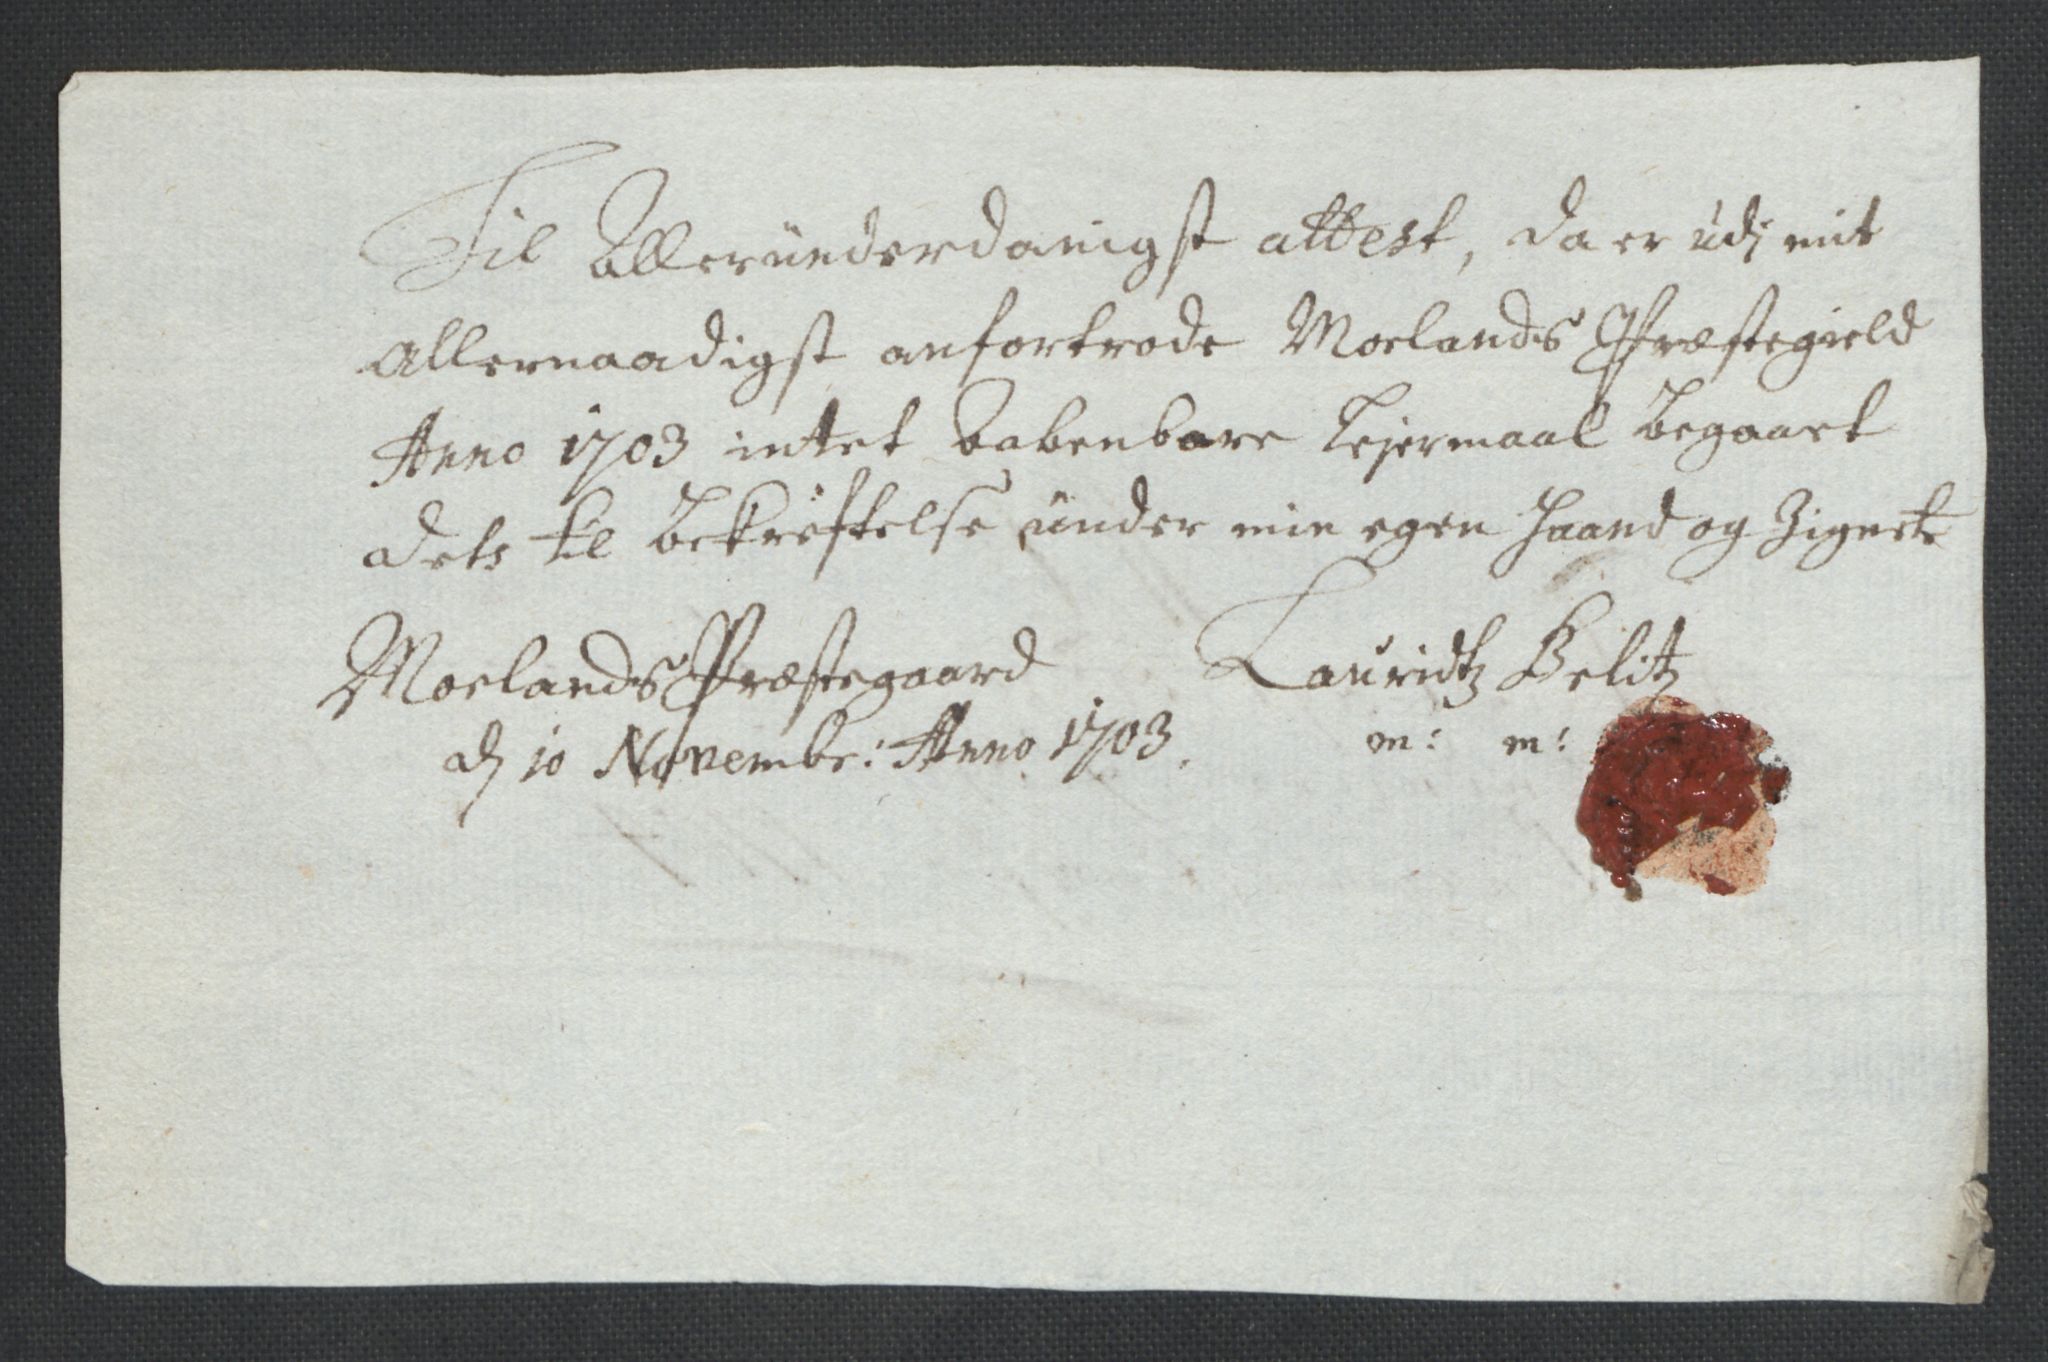 Til Alleründerdanigst attest, da er üdj mit
Allernaadigst anfortrode Moelands Præstegield
Anno 1703 intet aabenbare Lejermaal begaaet
dets til bekreftelse ünder min egen Haand og Zignete
Moelands Præstegaard Lauridtz Belitz
dj 10 Novembr: Anno 1703. m: m: